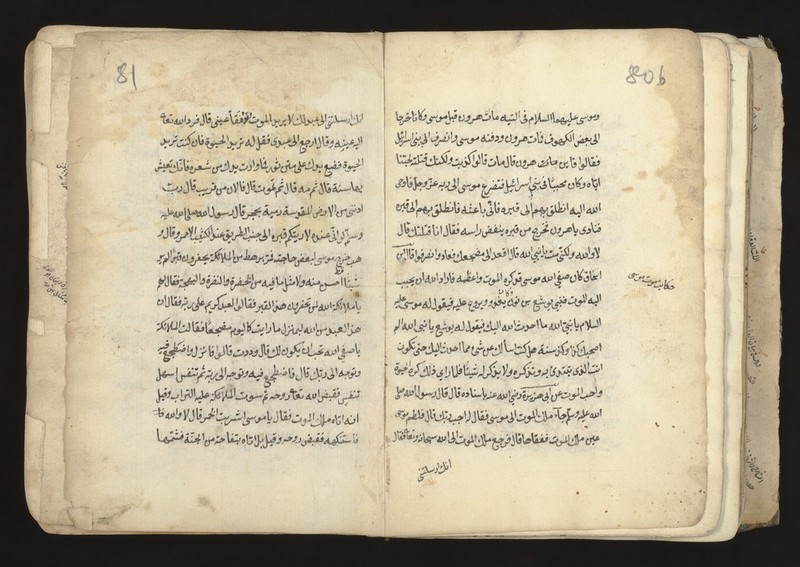 80b
وموسى عليهما السلام فى التيه مات هرون قبل موسى وكانا خرجا
الى بعض الكهوف فمات هرون ودفنه موسى وانصرف الى بنى اسرائيل
فقالوا فاين هرون قال مات قالوا كذبت ولكنك قتلته لحبنا
اياه وكان محببا فى بنى اسرائيل فتضرع موسى الى ربه عز وجل فاوحى
الله اليه انطلق بهم الى قبره فانى باعثه فانطلق بهم الى قبره
فنادى ياهرون فخرج من قبره ينفض راسه فقال انا قتلتك قال
لا والله ولكنى مت يانبى الله قال فعد الى مضجعك فعاد وانصرفوا قال ابن
اسحاق كان صفى الله موسى قد كره الموت واعظمه فاراد الله ان يحبب
اليه الموت فنبى يوشع بن نون وكان يغدو ويروح عليه فيقول له موسى عليه
السلام يا نبى الله ما احدث الله اليك فيقول له يوشع يا نبى الله الم
اصحبك كذا وكذا سنة هل كنت اسالك عن شىء مما احدث اليك حتى تكون
انت الذى تبتدى به وتذكره ولا يذكر له شيئا فلما راى ذلك كره الحيوة
واحب الموت عن ابى هريرة رضى الله عنه باسناده قال قال رسول الله صلى
الله عليه وسلم جاء ملك الموت الى موسى فقال اجب ربك قال فلطم موسى
عين ملك الموت ففقاها قال فرجع ملك الموت الى الله سبحانه وتعالى فقال
انك ارسلتنى
حكايت موت موسى
81
انك ارسلتنى الى عبد لك لا يريد الموت وفقأ عينى قال فرد الله تعالى
اليه عينه وقال ارجع الى عبدى فقل له تريد الحيوة فان كنت تريد
الحيوة فضع يدك على متن ثور فما وارت يدك من شعره فانك تعيش
بها سنة قال ثم مه قال ثم تموت قال فالان من قريب قال رب
ادننى من الارض المقدسة رمية بحجر قال رسول الله صلى الله عليه
وسلم لو انى عنده لاريتكم قبره الى جنب الطريق عند الكثيب الاحمر وقال و
هب خرج موسى لبعض حاجته فمر برهط من الملائكة يحفرون قبرا لم ير
شيئا قط احسن منه ولا مثل ما فيه من الخضرة والنضرة والبهجة فقال لهم
يا ملائكة الله لمن تحفرون هذا القبر فقالوا لعبد كريم على ربه فقال ان
هذا العبد من الله لبمنزل ما رايت كاليوم مضجعا فقالت الملائكة
يا صفى الله تحب ان يكون لك قال وددت قالوا فانزل واضطجع فيه
وتوجه الى ربك قال فاضطجع فيه وتوجه الى ربه ثم تنفس اسهل
تنفس فقبض الله تعالى روحه ثم سوت الملائكة عليه التراب وقيل
انه اتاه ملك الموت فقال يا موسى اشربت الخمر قال لا والله قال
فاستنكهه فقبض روحه وقيل بل اتاه بتفاحة من الجنة فشمها